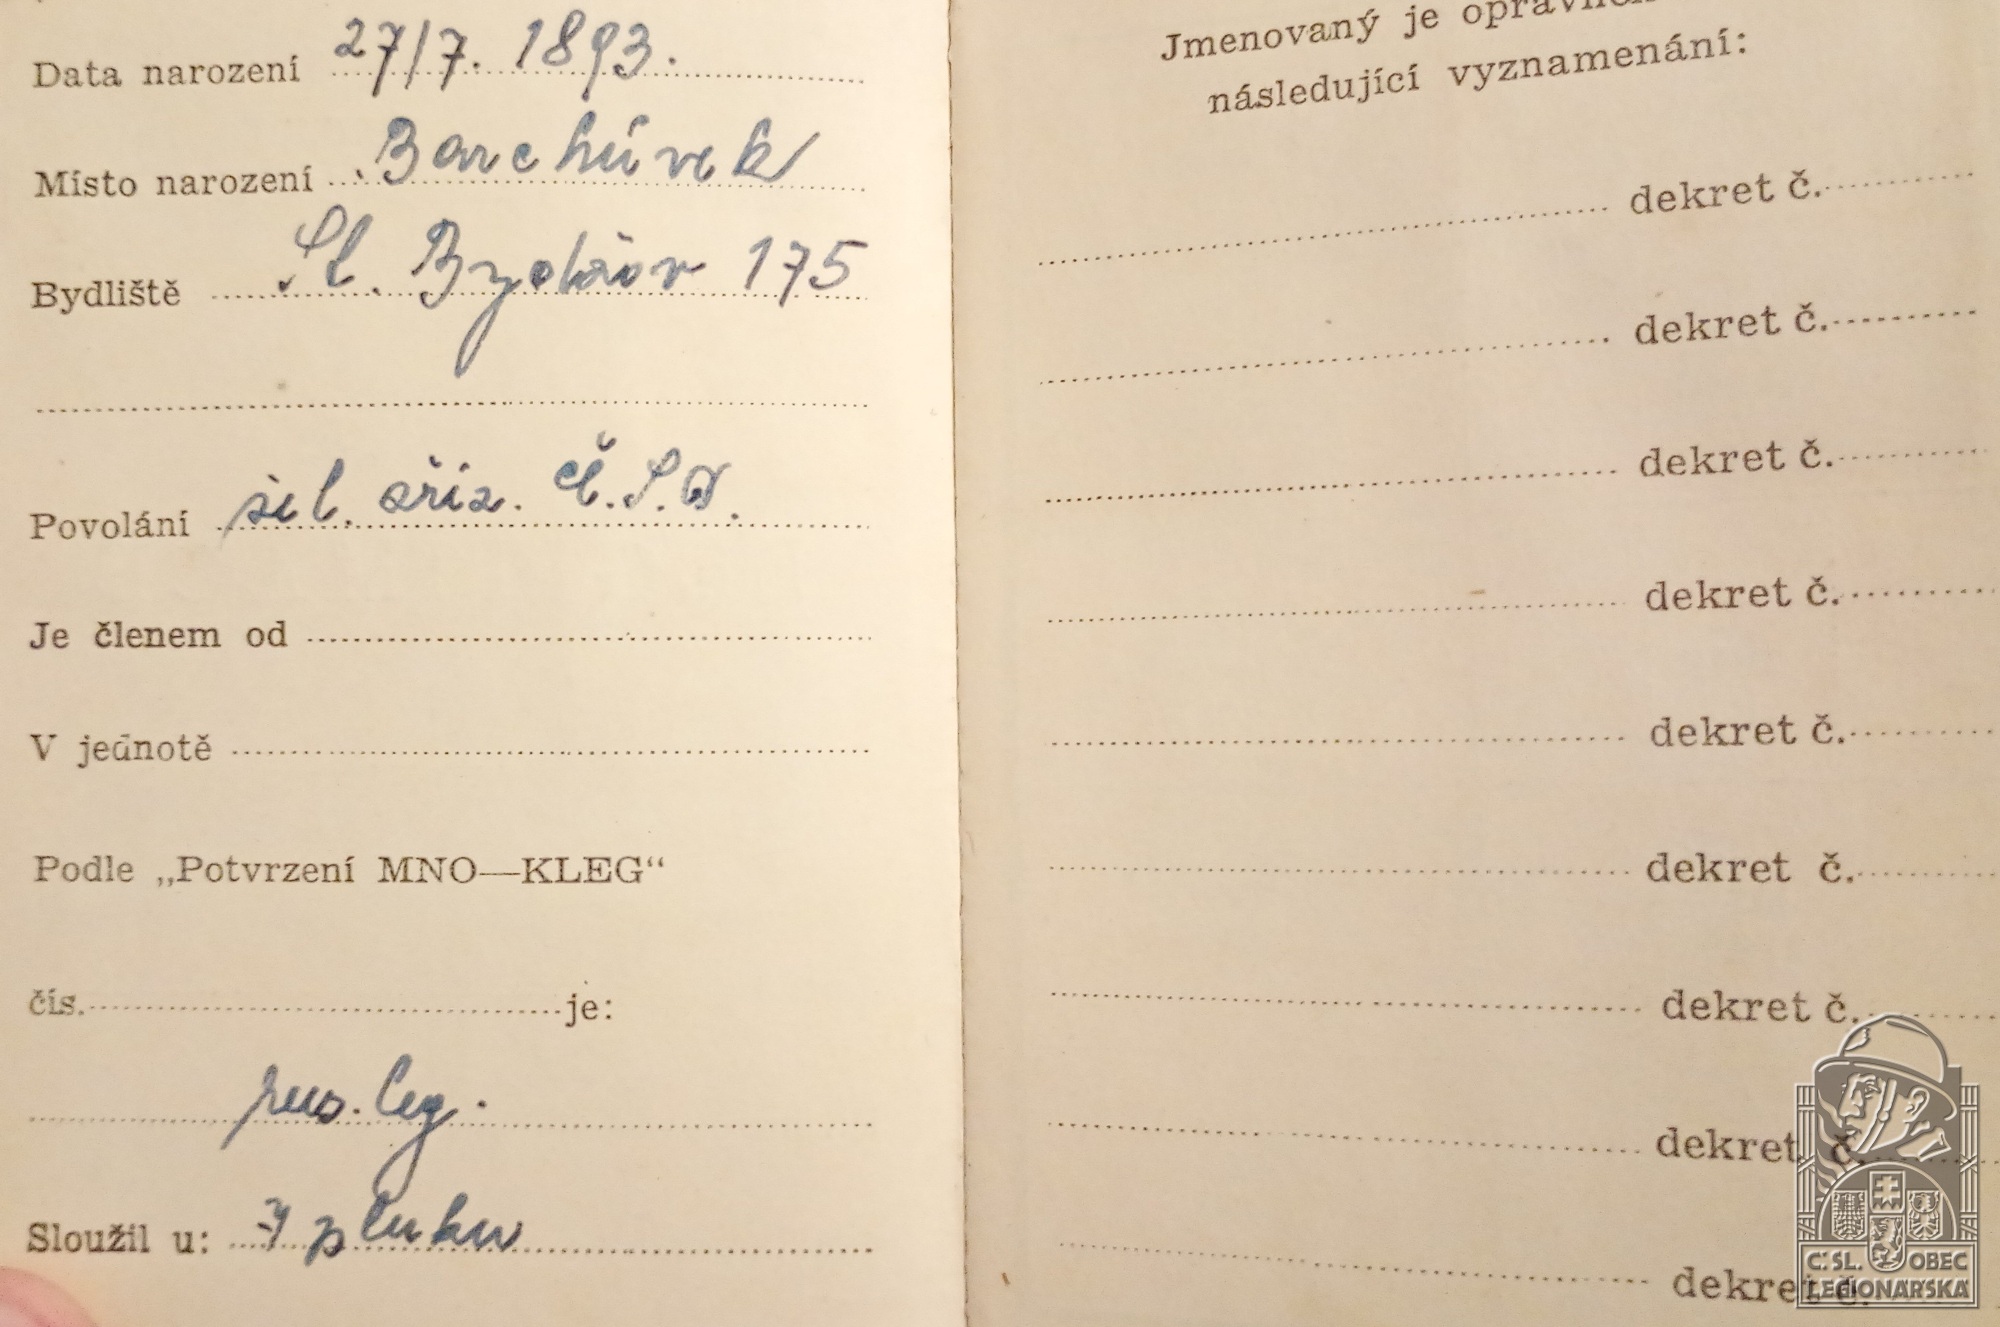 Data narození 27/7. 1893.
Místo narození Barchůvek
Bydliště Sl. Bydžov 175
Povolání žel. zříz. Č.S.D.
Je členem od
V jednotě
Podle „Potvrzení MNO—KLEG“
čís. je:
rus. leg.
Sloužil u: 7 pluku
Jmenovaný je
následující vyznamenání:
dekret č.
dekret č.
dekret č.
dekret č.
dekret č.
dekret č.
dekret č.
dekret č.
dekret č.
Č.SL. OBEC
LEGIONÁŘSKÁ